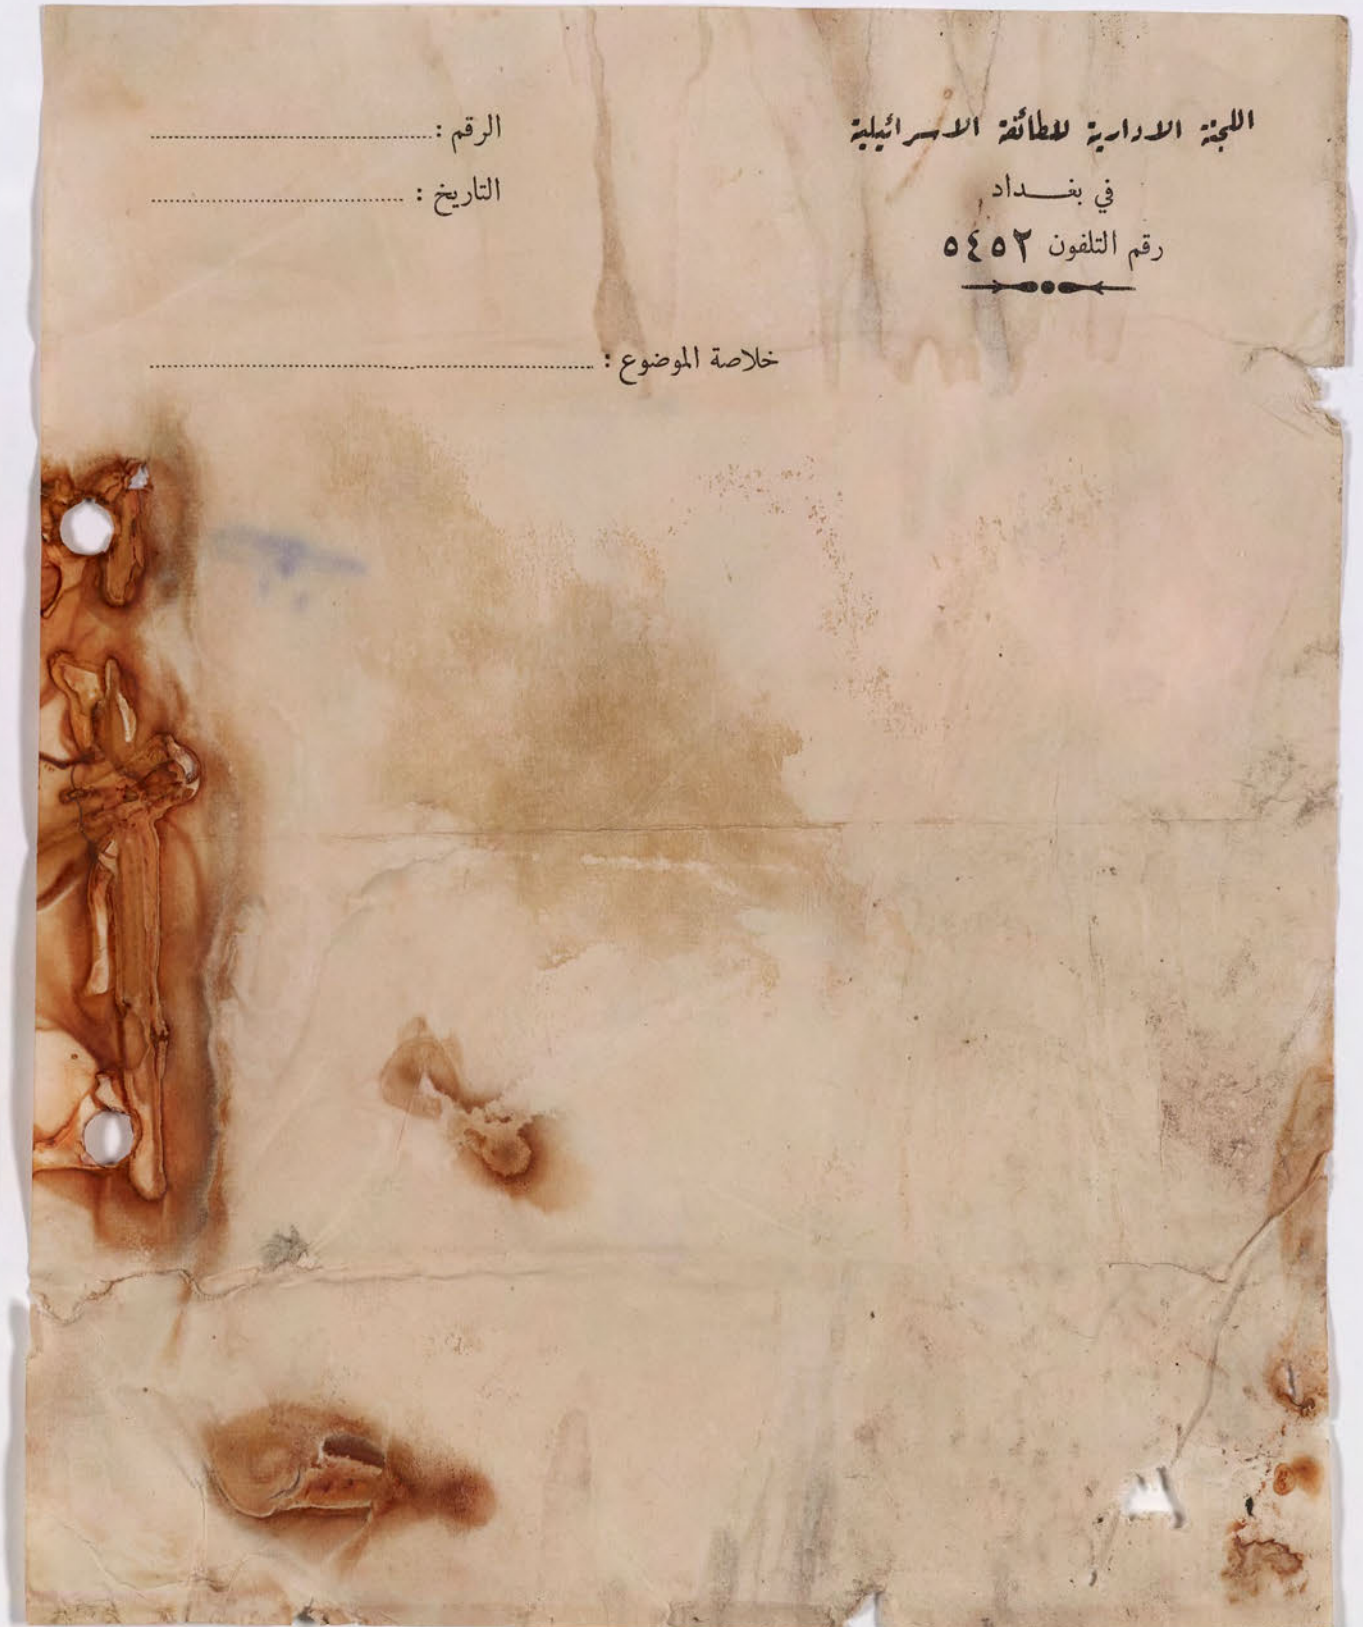 اللجنة الادارية للطائفة الاسرائيلية
في بغداد
رقم التلفون ٥٤٥٢
الرقم :
التاريخ :
خلاصة الموضوع :